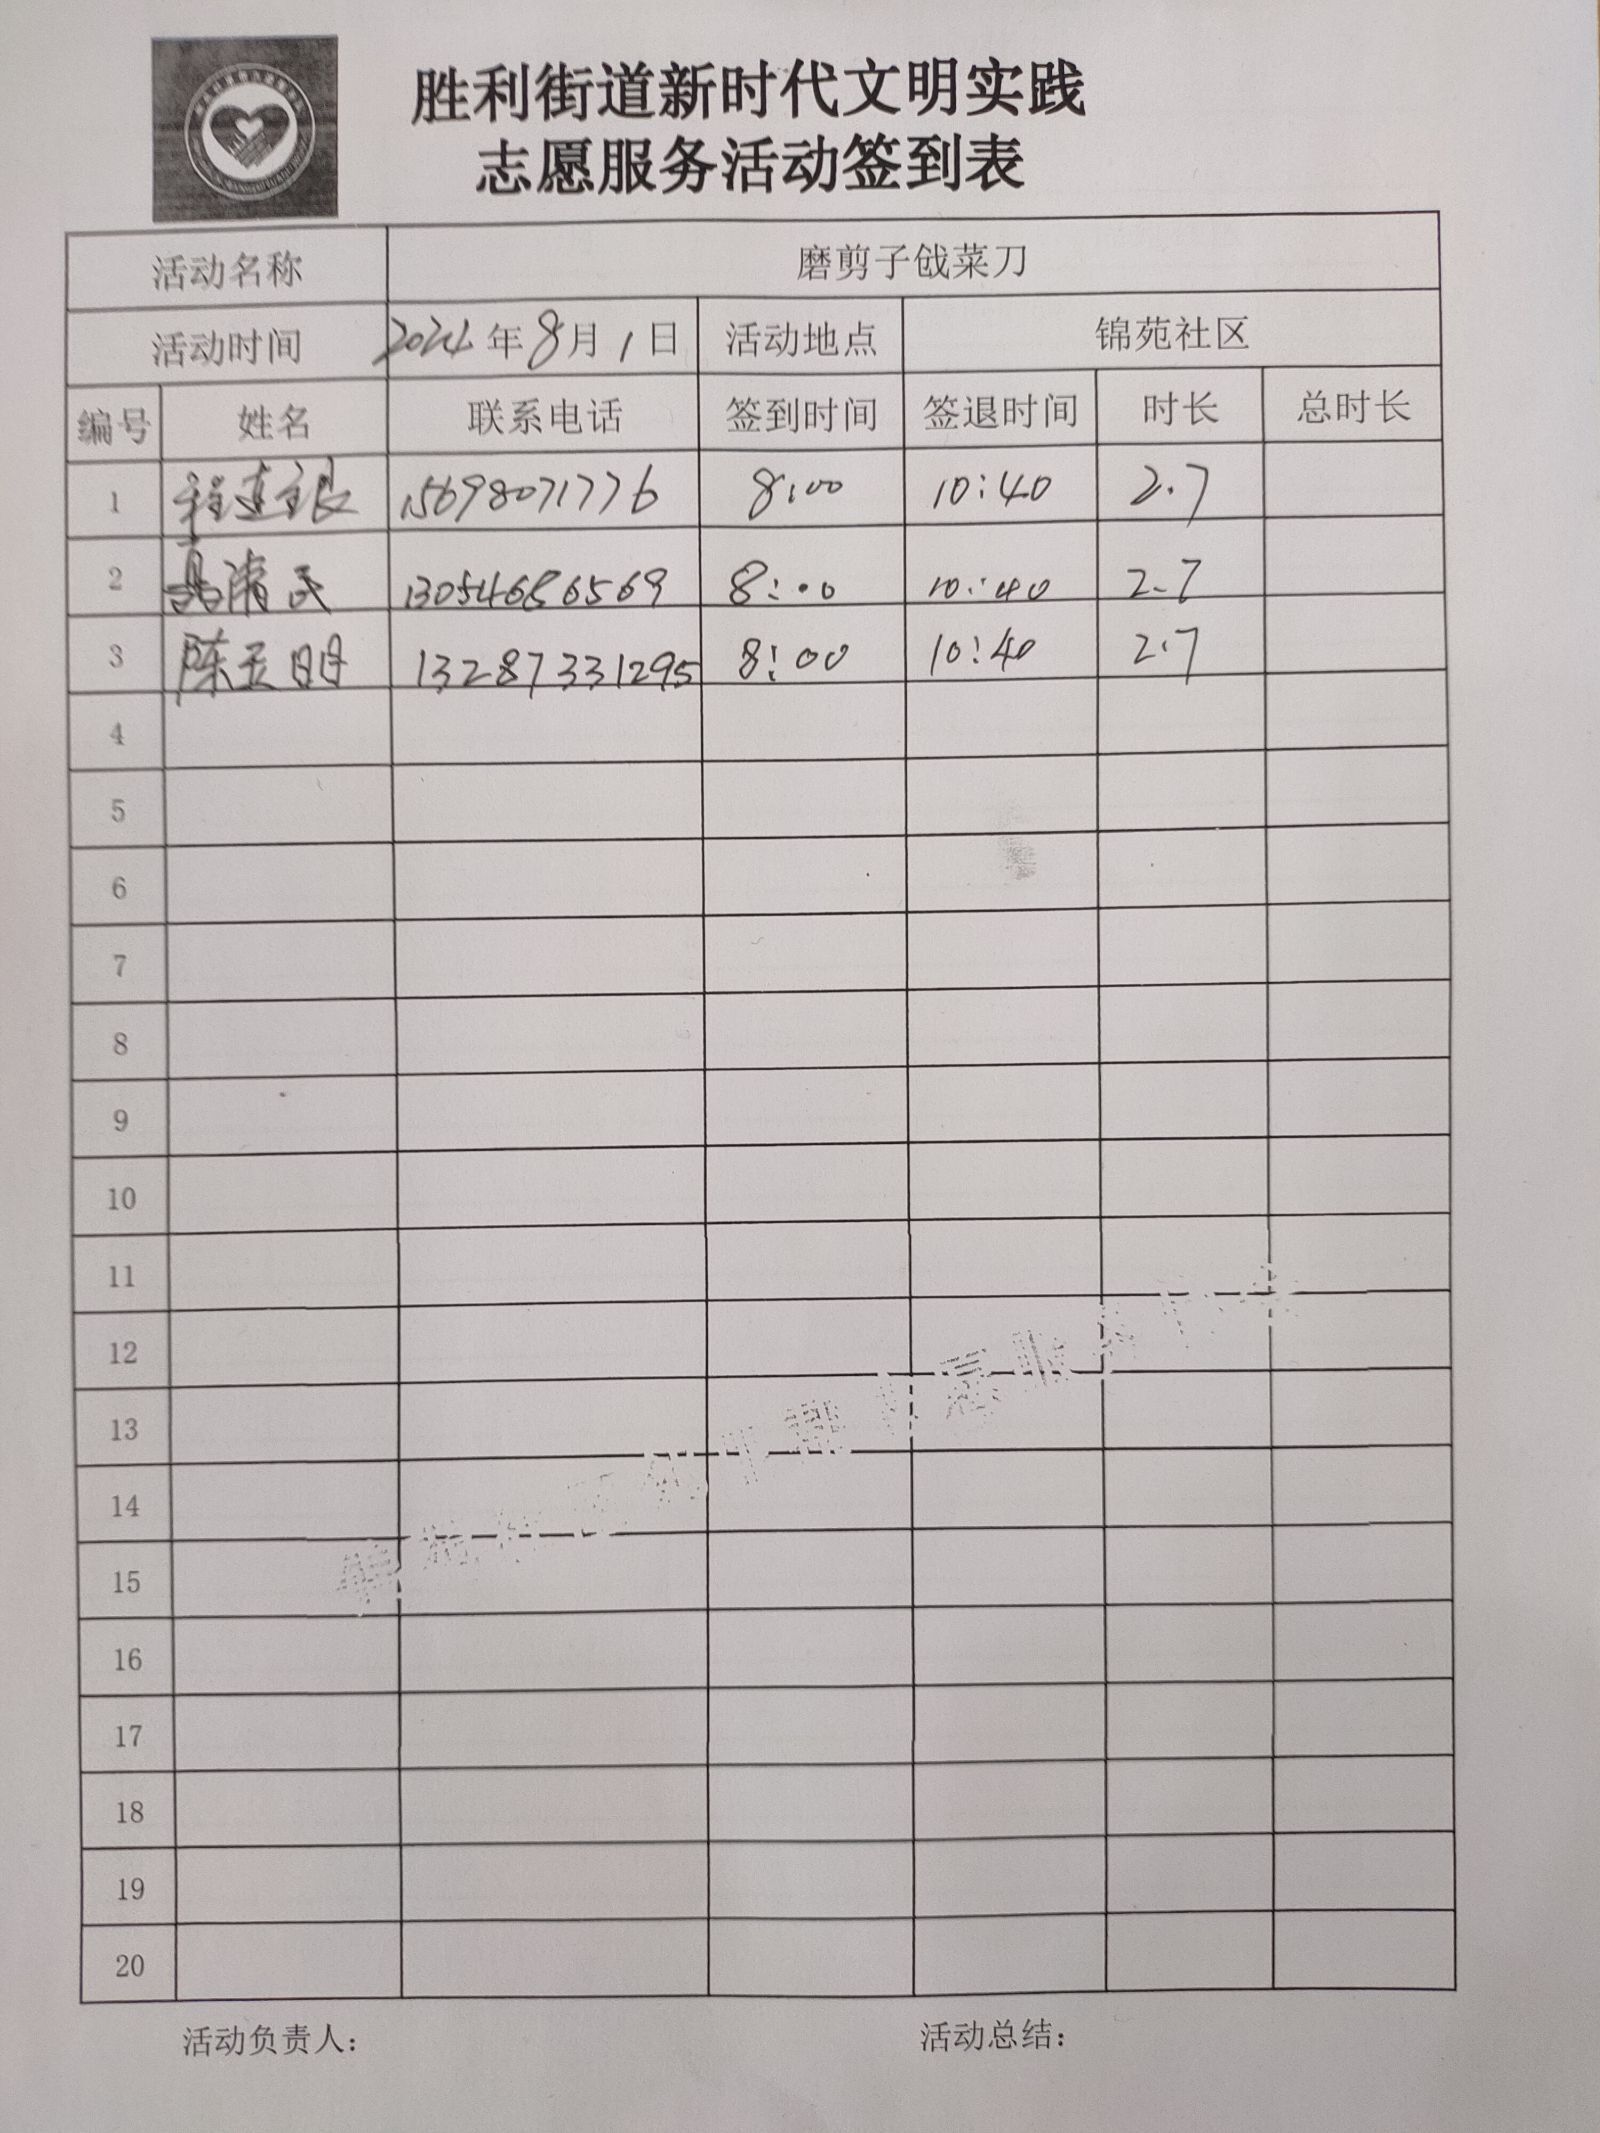 胜利街道新时代文明实践
志愿服务活动签到表
活动名称 磨剪子戗菜刀
活动时间 2024年8月1日 活动地点 锦苑社区
编号 姓名 联系电话 签到时间 签退时间 时长 总时长
1 15698071776 8:00 10:40 2.7
2 清民 13054686569 8:00 10:40 2.7
3 陈玉明 13287331295 8:00 10:40 2.7
4
5
6
7
8
9
10
11
12
13
14
15
16
17
18
19
20
活动负责人： 活动总结：